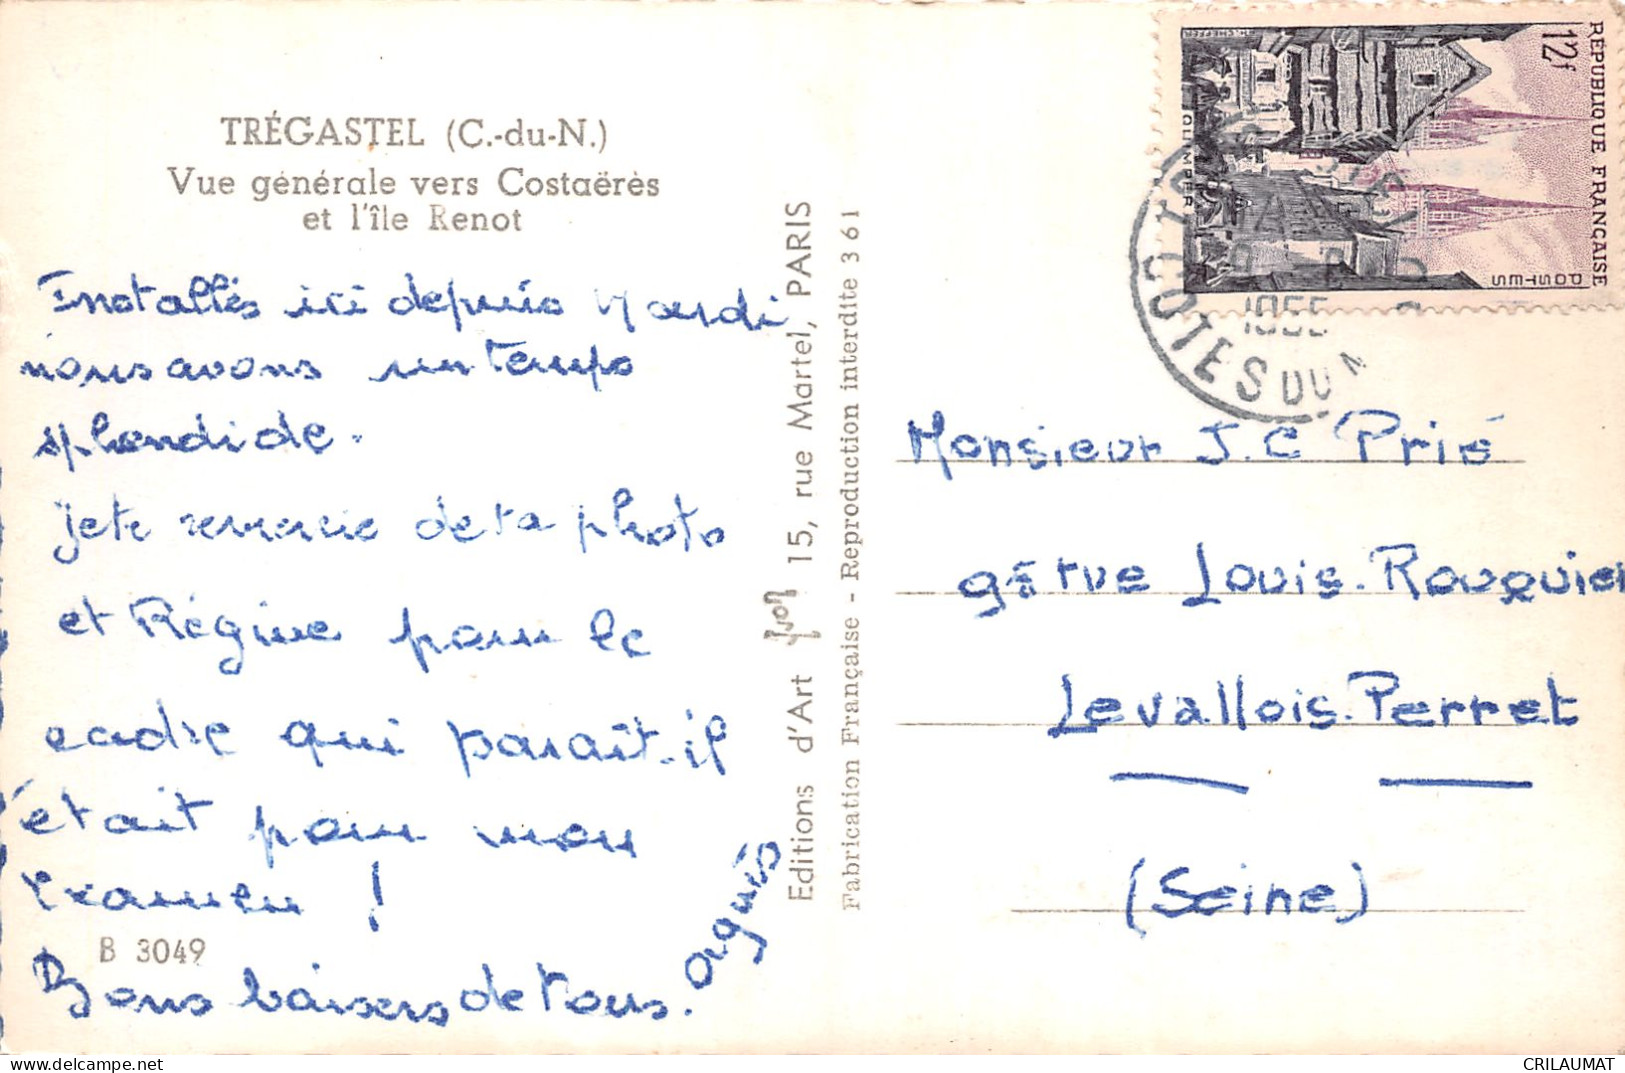 TRÉGASTEL (C.-du-N.)
Vue générale vers Costaérès
et l'île Renot
Installés ici depuis Mardi
nous avons un temps
splendide.
je te remercie de ta photo
et Régine pour le
cadre qui paraît-il
était pour mon
examen !
Bons baisers de tous.
B 3049
Editions d'Art yvon 15, rue Martel, PARIS
Fabrication Française - Reproduction interdite 361
RÉPUBLIQUE FRANÇAISE
12f
POSTES
QUIMPER
1955
COTES DU N
Monsieur J.C Prié
rue Louis-Rouquier
Levallois-Perret
(Seine)
CRILAUMAT